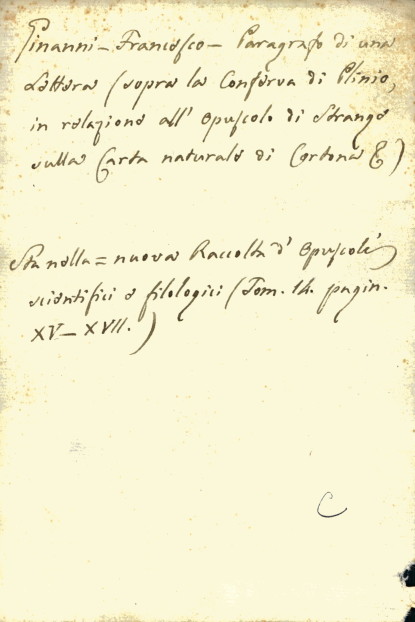 Ginanni - Francesco - Paragrafo di una
Lettera (sopra la Conferva di Plinio,
in relazione all' opuscolo di Strange
sulla Carta naturale di Cortona &)
Sta nella = nuova Raccolta d' Opuscoli
scientifici e filologici (Tom. 14. pagin.
XV - XVII.)
C